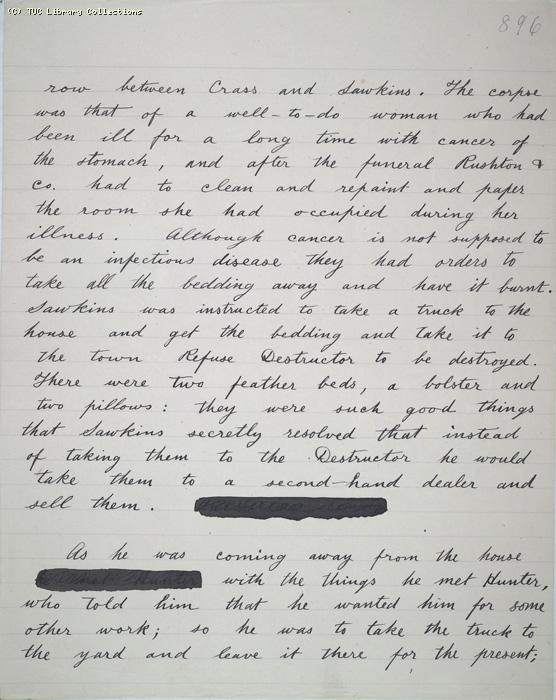 (C) TUC Library Collections
896
row between Crass and Sawkins. The corpse
was that of a well-to-do woman who had
been ill for a long time with cancer of
the stomach, and after the funeral Rushton &
Co. had to clean and repaint and paper
the room she had occupied during her
illness. Although cancer is not supposed to
be an infectious disease they had orders to
take all the bedding away and have it burnt.
Sawkins was instructed to take a truck to the
house and get the bedding and take it to
the town Refuse Destructor to be destroyed.
There were two feather beds, a bolster and
two pillows: they were such good things
that Sawkins secretly resolved that instead
of taking them to the Destructor he would
take them to a second-hand dealer and
sell them.
As he was coming away from the house
with the things he met Hunter,
who told him that he wanted him for some
other work; so he was to take the truck to
the yard and leave it there for the present;